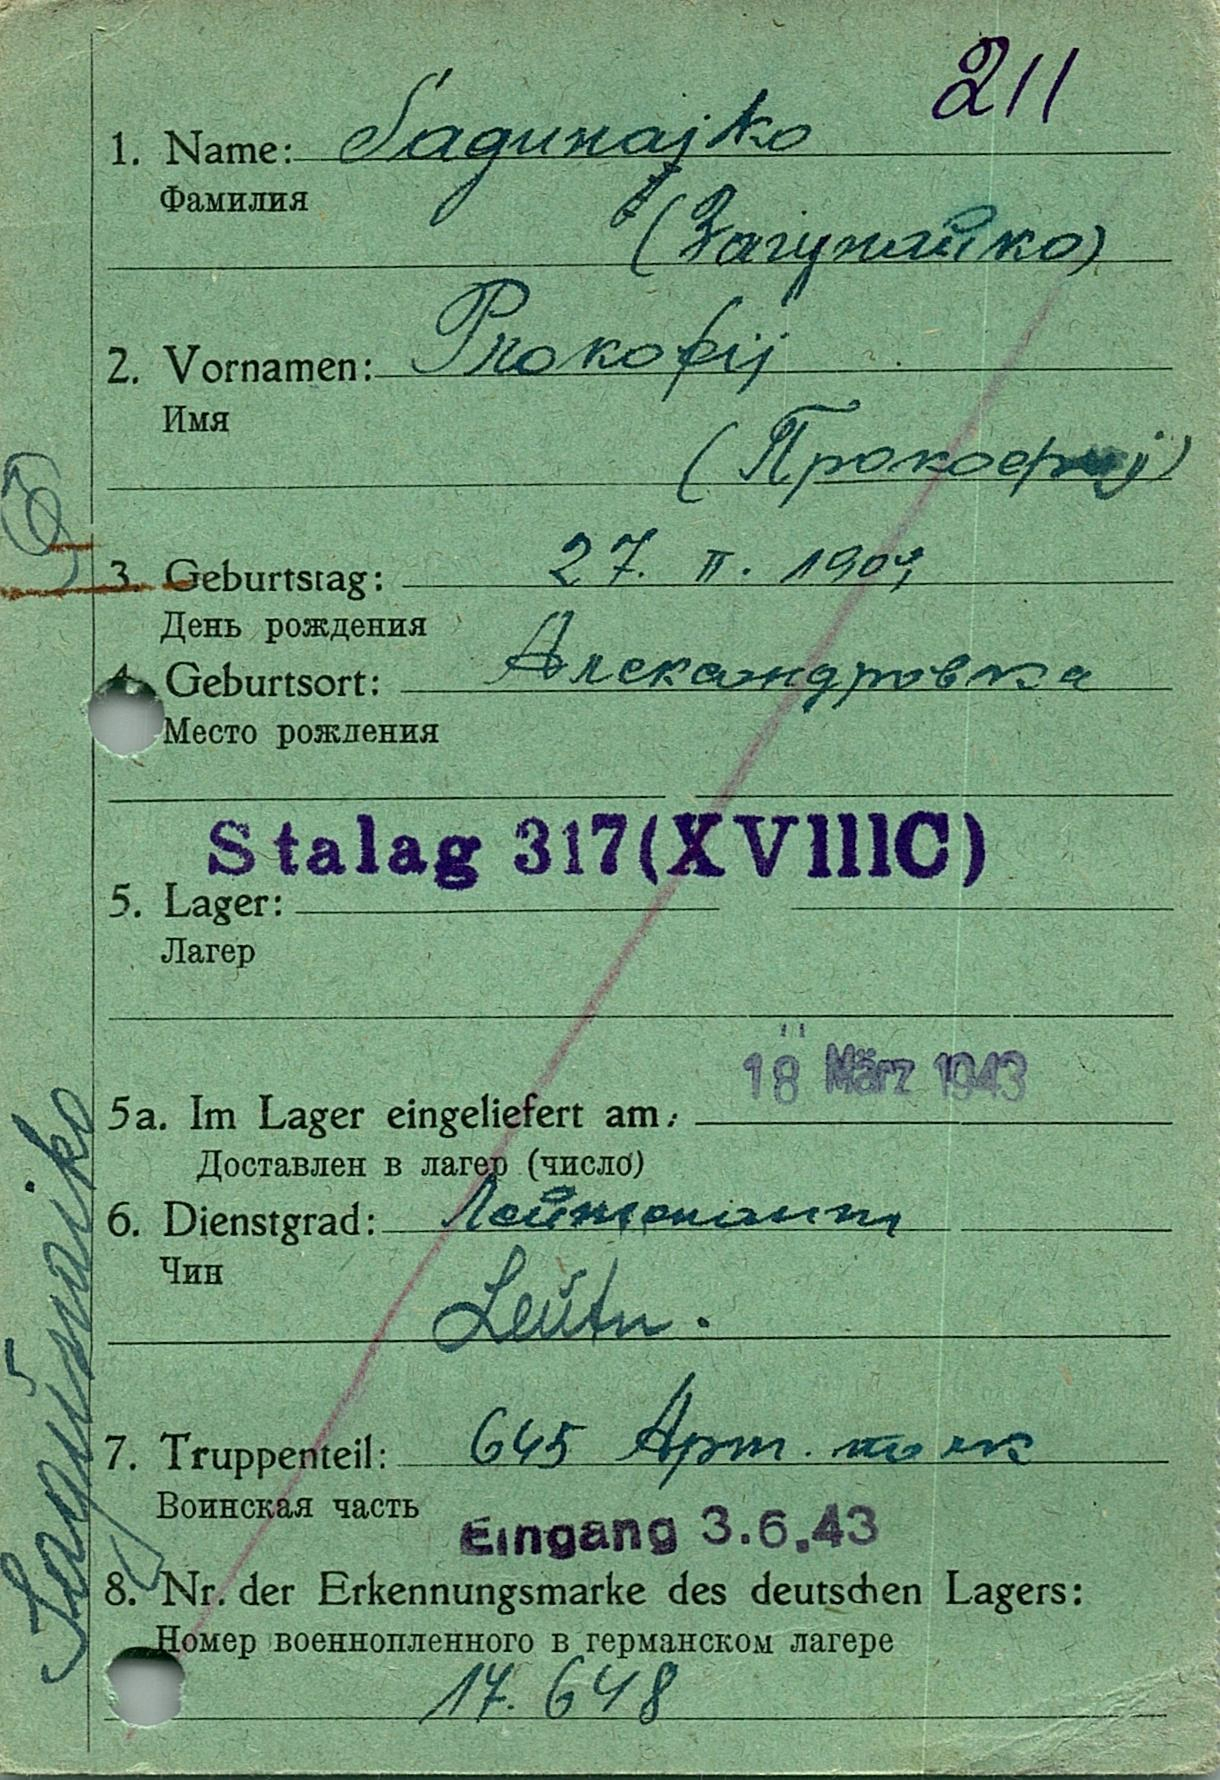 211
1. Name: Sagunajko
Фамилия
(Загунайко)
2. Vornamen: Prokofij
Имя
(Прокофij)
3. Geburtstag: 27. II. 1904
День рождения
4. Geburtsort: Александровка
Место рождения
Stalag 317(XVIIIC)
5. Lager:
Лагер
18 März 1943
5a. Im Lager eingeliefert am:
Доставлен в лагер (число)
6. Dienstgrad: Лейтенант
Чин
Leutn.
7. Truppenteil: 645 Арт. полк
Воинская часть
Eingang 3.6.43
8. Nr. der Erkennungsmarke des deutschen Lagers:
Номер военнопленного в германском лагере
17.648
Sagunaiko